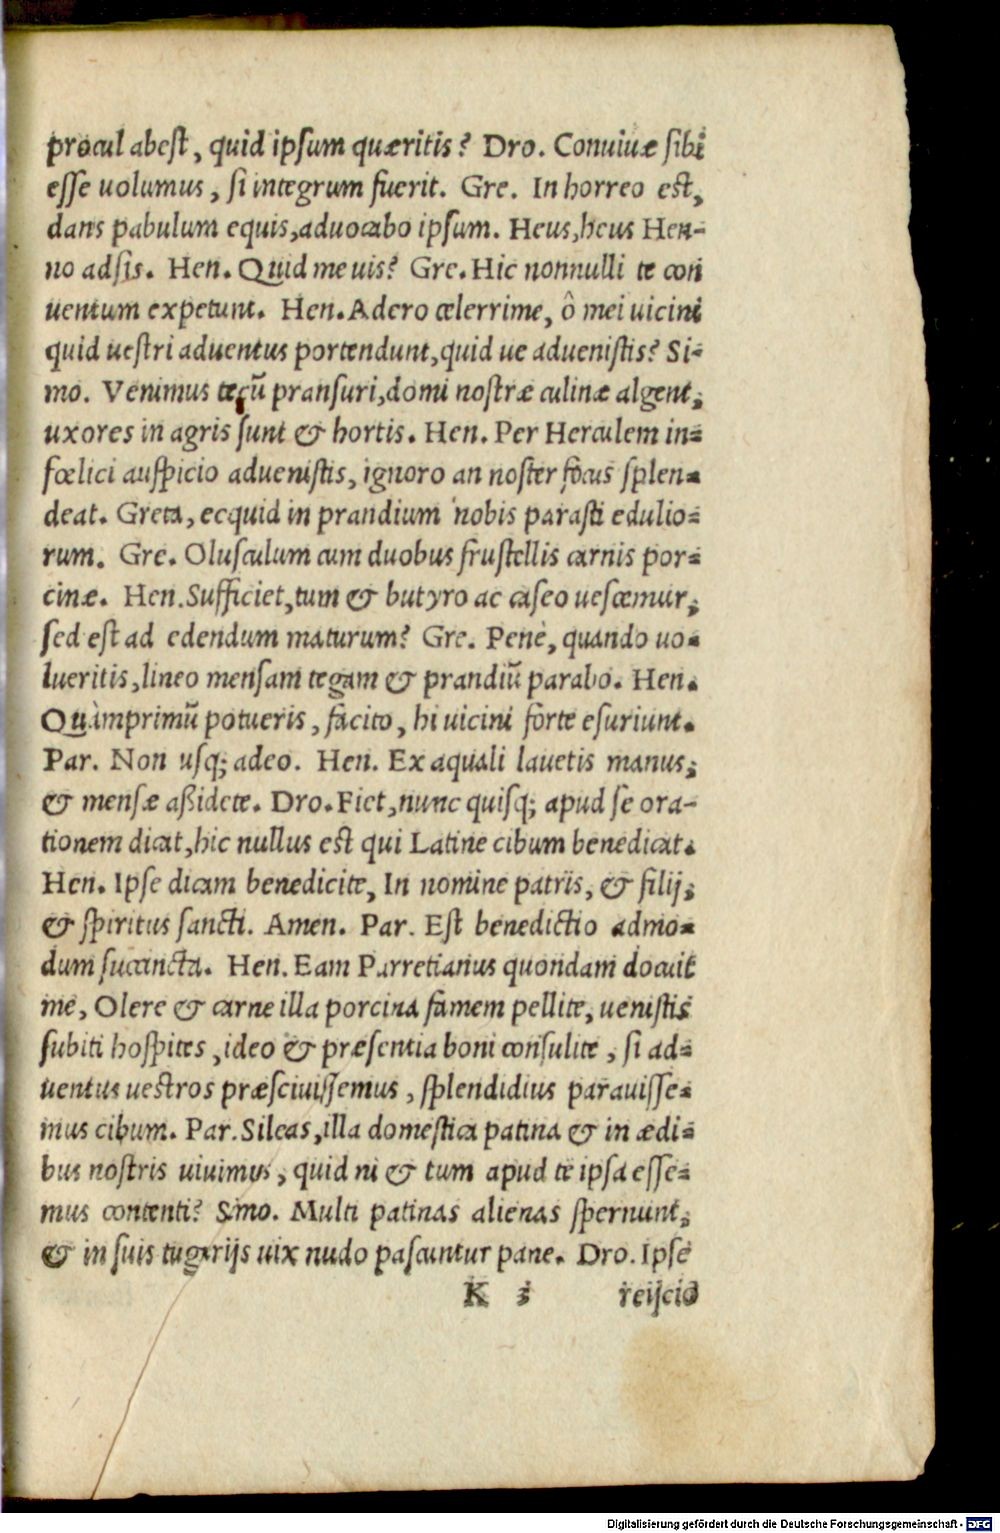 procul abest, quid ipsum quæritis? Dro. Conuiuæ sibi
esse uolumus, si integrum fuerit. Gre. In horreo est,
dans pabulum equis, aduocabo ipsum. Heus, heus Hen-
no adsis. Hen. Quid me uis? Gre. Hic nonnulli te con
uentum expetunt. Hen. Adero celerrime, ô mei uicini
quid uestri aduentus portendunt, quid ue aduenistis? Si-
mo. Venimus tecũ pransuri, domi nostræ culinæ algent,
uxores in agris sunt & hortis. Hen. Per Herculem in-
fœlici auspicio aduenistis, ignoro an noster focus splen-
deat. Greta, ecquid in prandium nobis parasti edulio-
rum. Gre. Olusculum cum duobus frustellis carnis por-
cinæ. Hen. Sufficiet, tum & butyro ac caseo uescemur,
sed est ad edendum maturum? Gre. Penè, quando uo-
lueritis, lineo mensam tegam & prandiũ parabo. Hen.
Quàmprimũ potueris, facito, hi uicini forte esuriunt.
Par. Non usq; adeo. Hen. Ex aquali lauetis manus,
& mensæ aßidete. Dro. Fiet, nunc quisq; apud se ora-
tionem dicat, hic nullus est qui Latine cibum benedicat.
Hen. Ipse dicam benedicite, In nomine patris, & filij,
& spiritus sancti. Amen. Par. Est benedictio admo-
dum succincta. Hen. Eam Parretianus quondam docuit
me, Olere & carne illa porcina famem pellite, uenistis
subiti hospites, ideo & præsentia boni consulite, si ad-
uentus uestros præsciuissemus, splendidius parauisse-
mus cibum. Par. Sileas, illa domestica patina & in ædi-
bus nostris uiuimus, quid ni & tum apud te ipsa esse-
mus contenti? Simo. Multi patinas alienas spernunt,
& in suis tugurijs uix nudo pascuntur pane. Dro. Ipse
K 3 reijcio
Digitalisierung gefördert durch die Deutsche Forschungsgemeinschaft - DFG